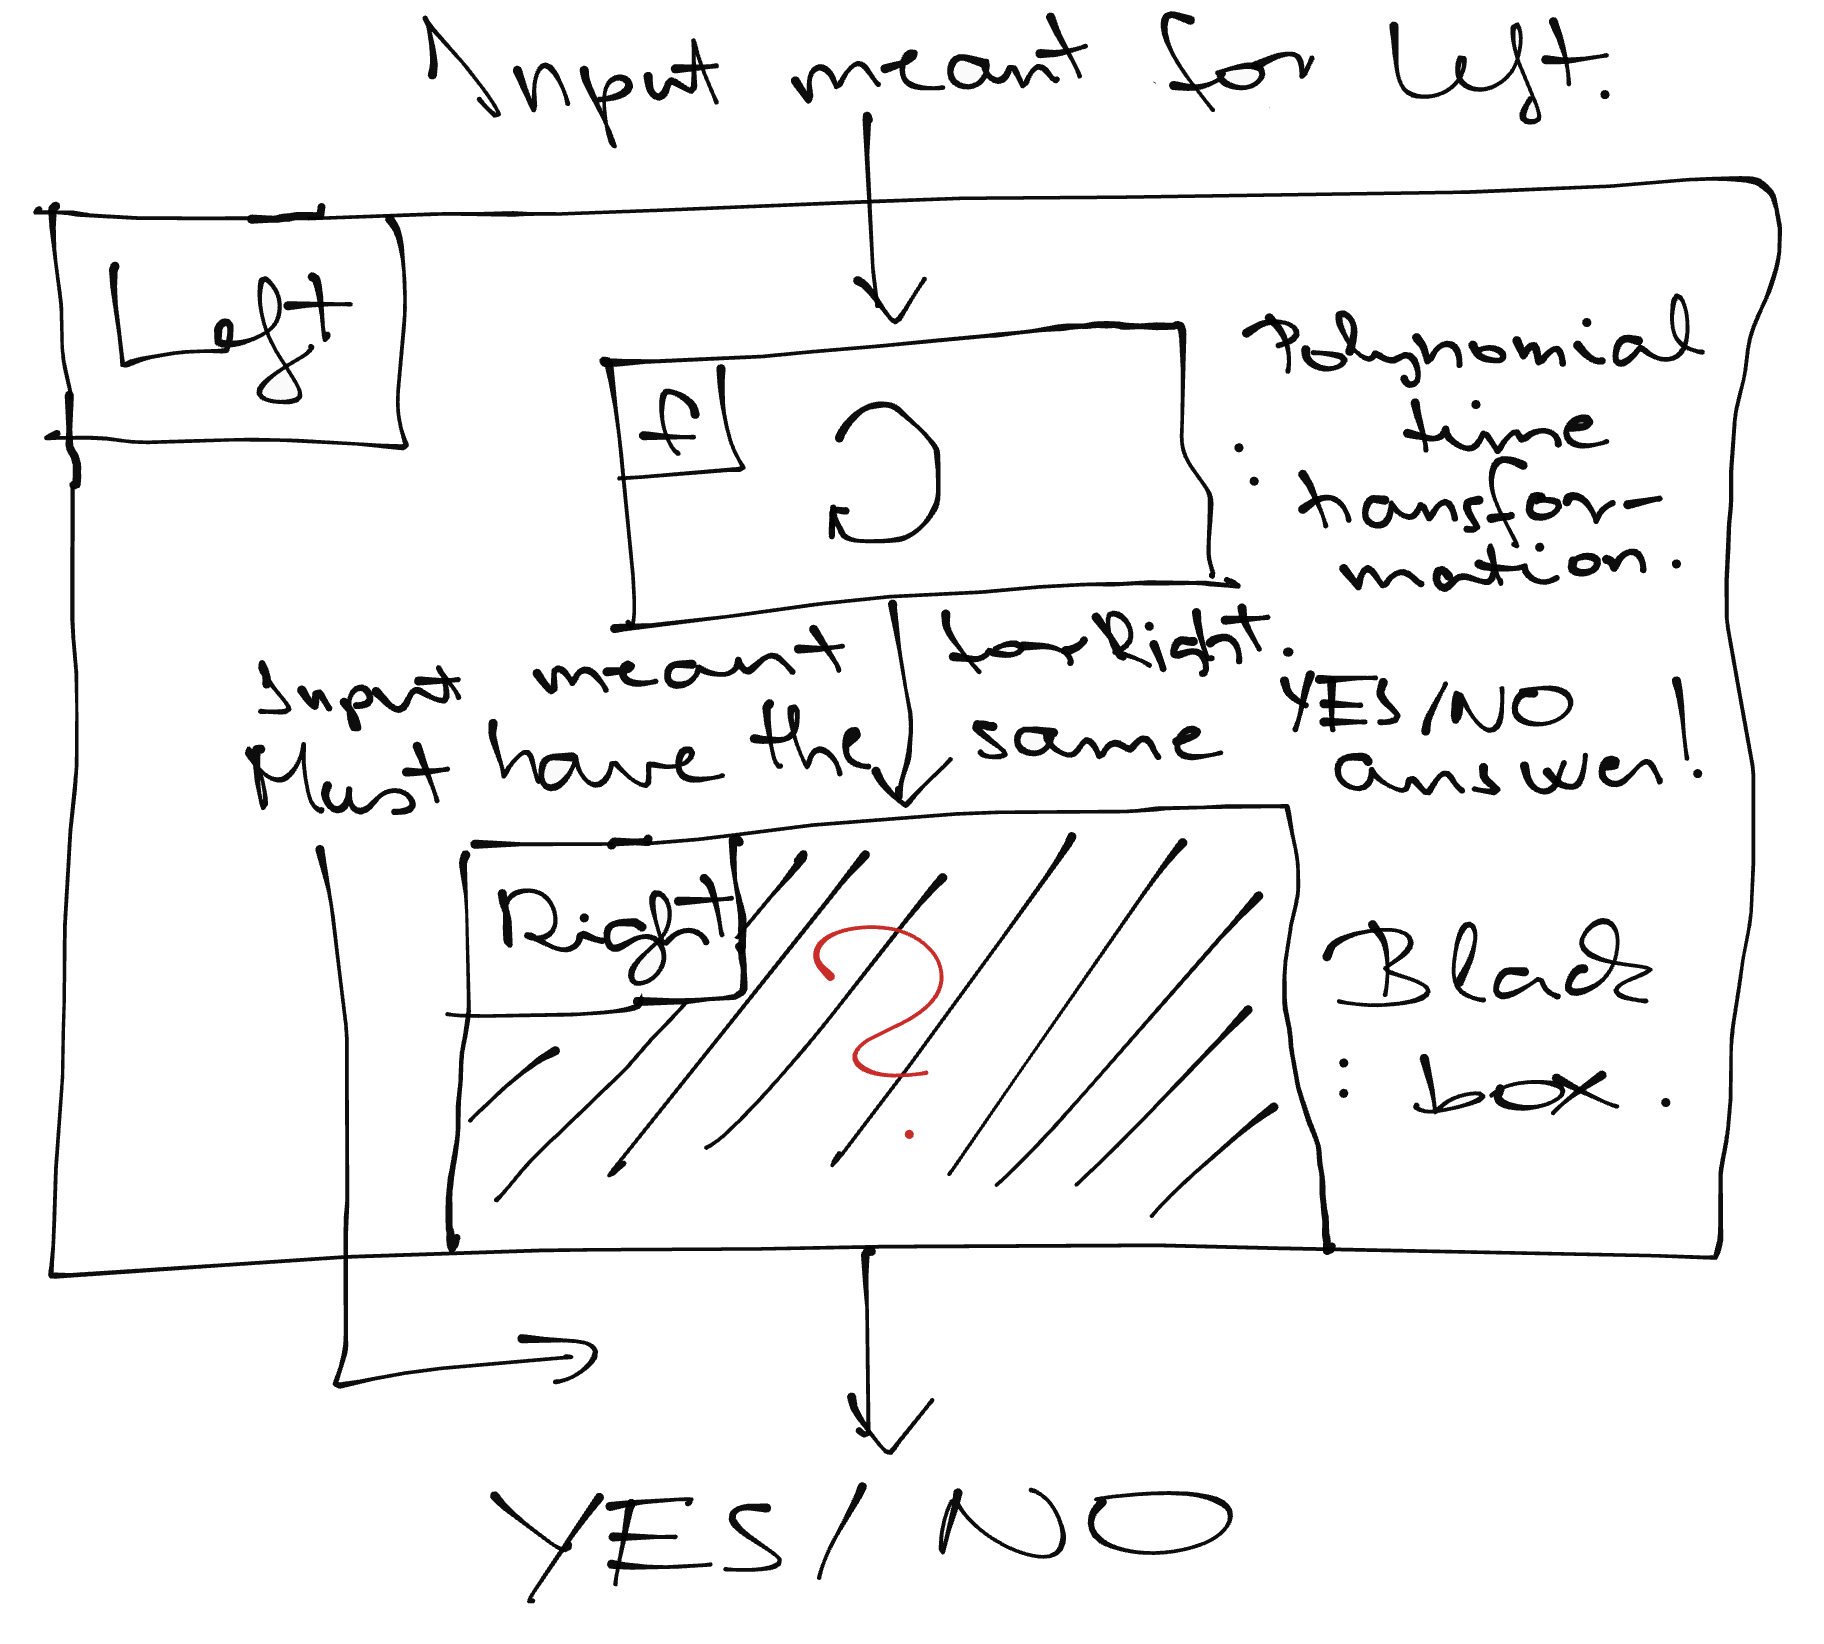 Input meant for Left.
Left
f
Polynomial
time
: transfor-
mation.
Input meant for Right.
Must have the same YES/NO
answer!
Right
?
Black
: box.
YES/NO